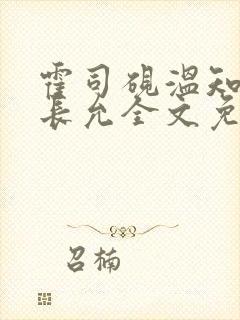 霍司砚温知
长允全文免
召楠